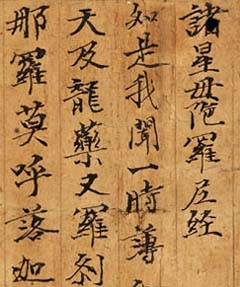 諸星母陁羅尼経
如是我聞一時薄
天及龍藥叉羅刹
那羅莫呼落迦